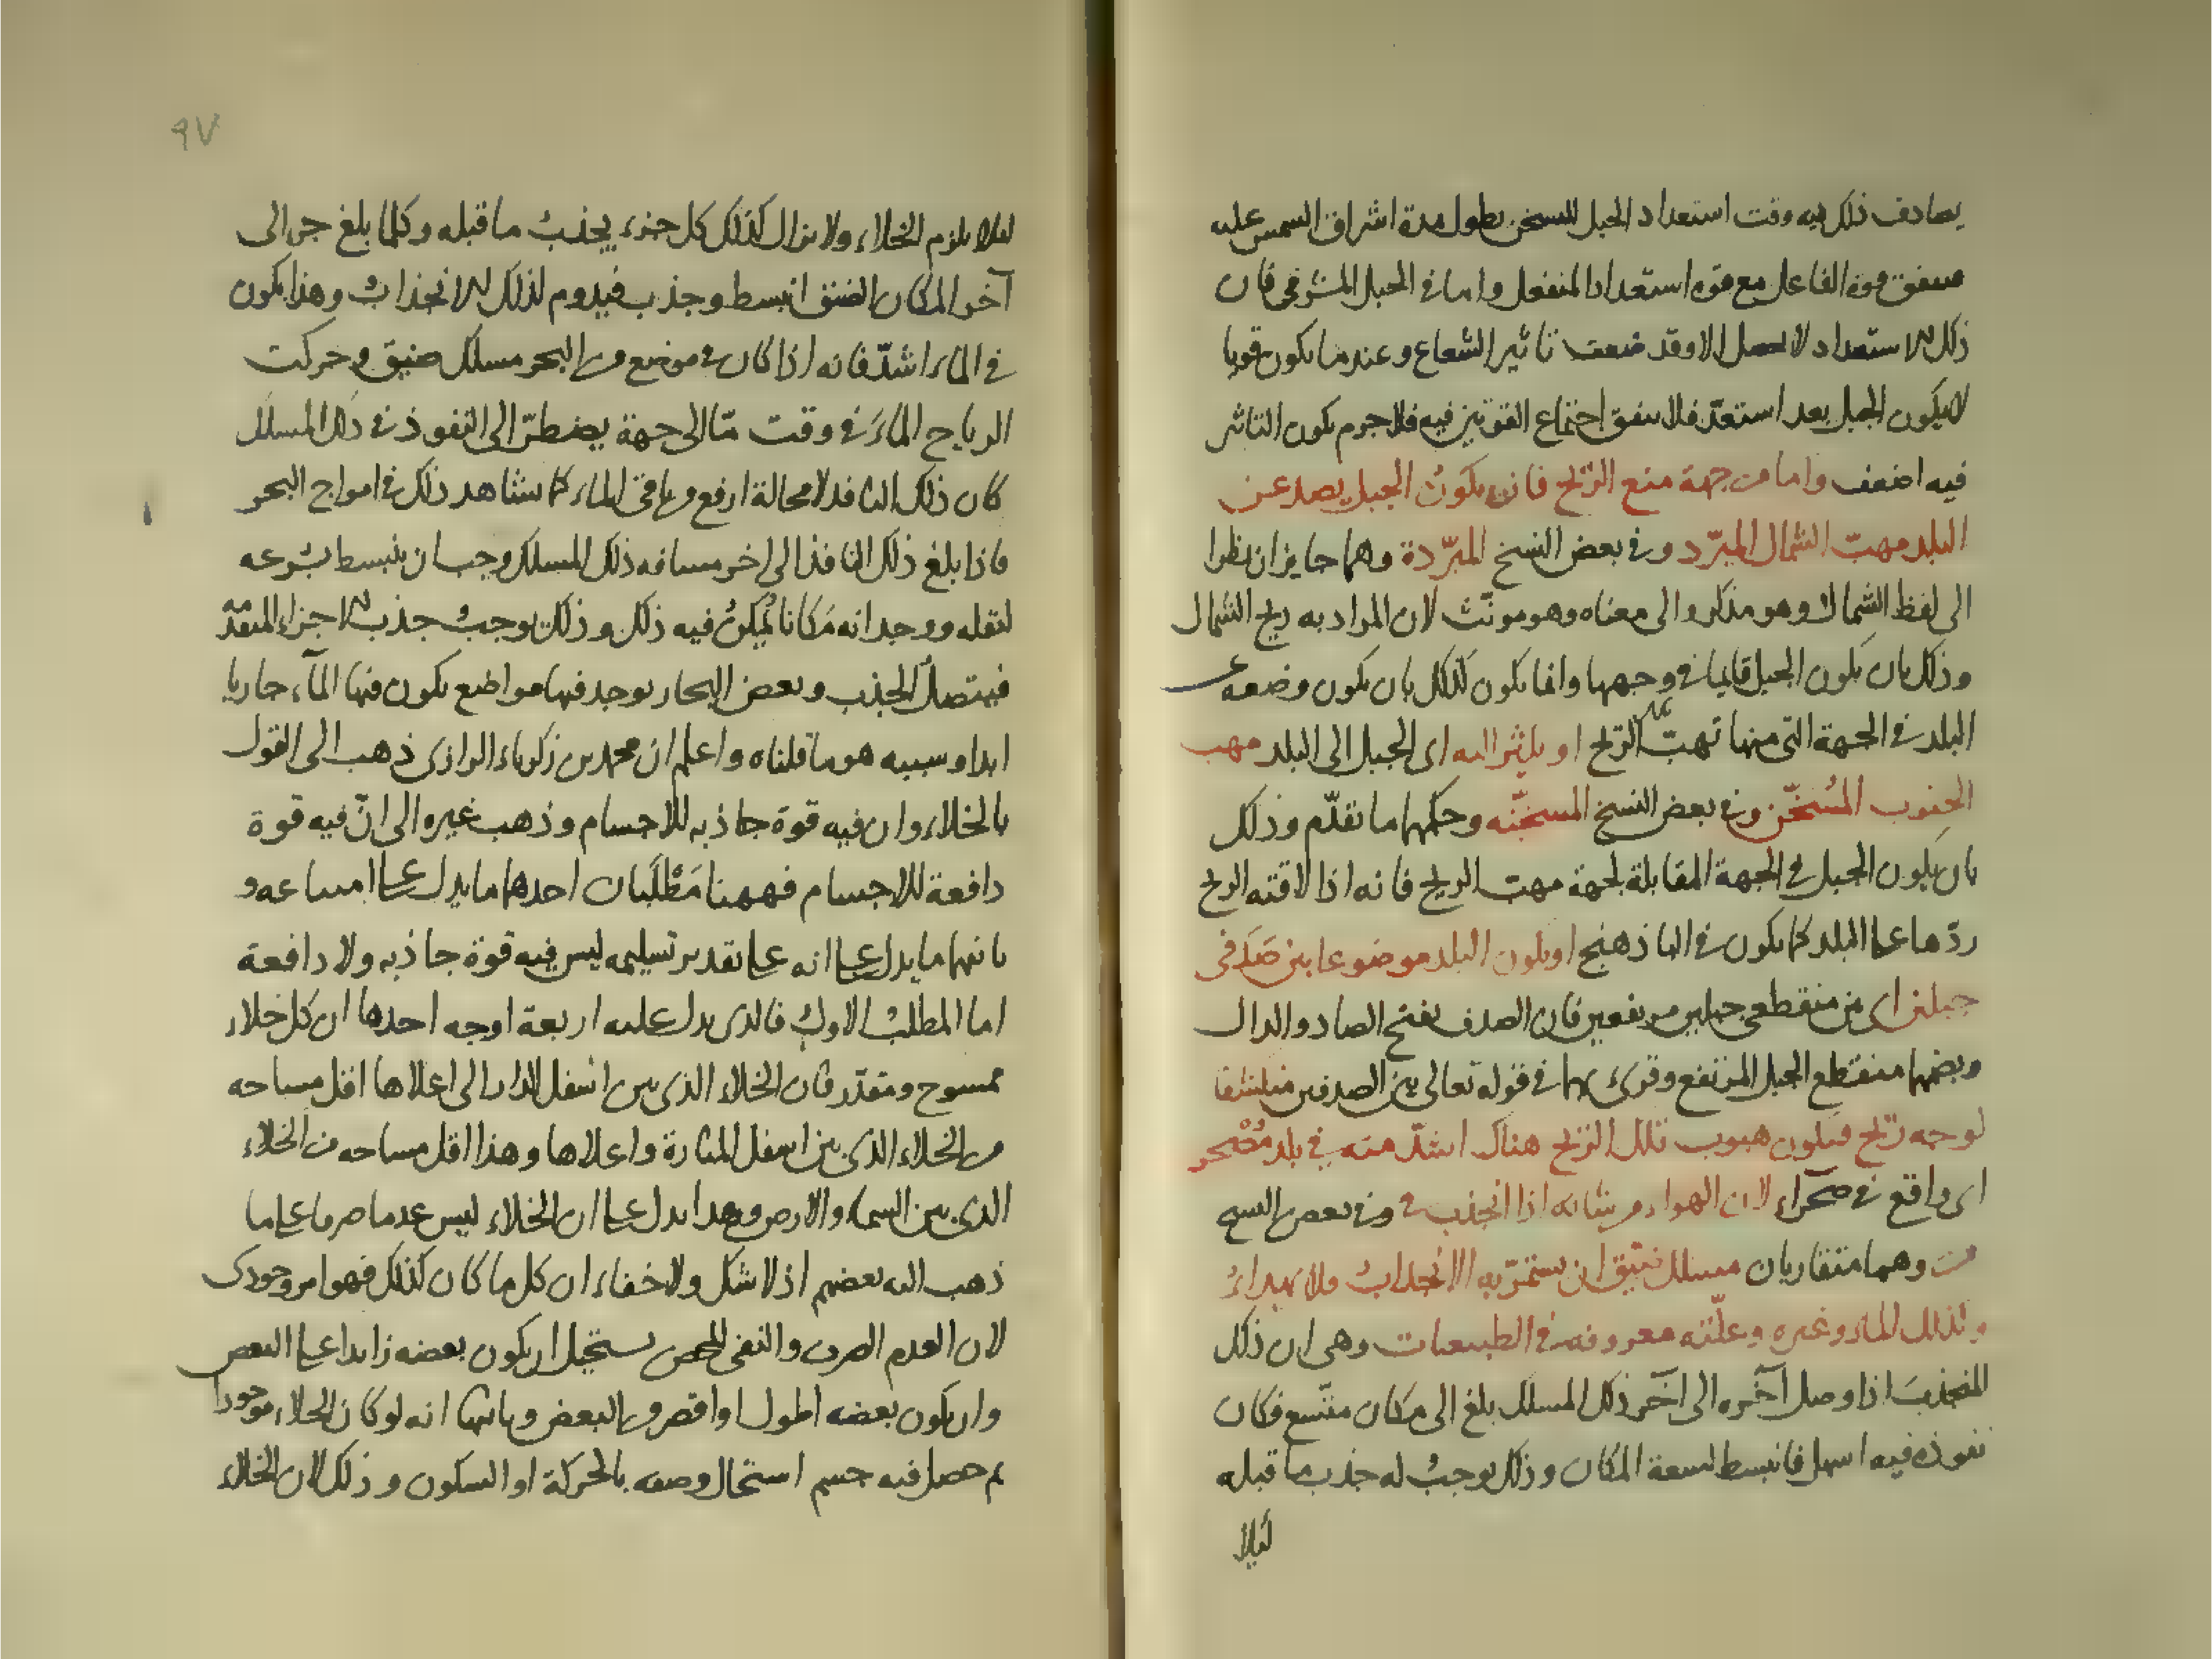 يصادف ذلك فيه وقت استعداد الجبل للتسخن بطول مدة اشراق الشمس عليه
فيتفق قوة الفاعل مع قوة استعداد المنفعل واما في الجبل المشرقي فان
ذلك الاستعداد لا يحصل الا وقد ضعف تاثير الشعاع وعندما يكون قويا
لا يكون الجبل بعد استعد فلا يتفق اجتماع القوتين فيه فلا جرم يكون التاثير
فيه اضعف واما من جهة منع الريح فان يكون الجبل يصد عن
البلد مهب الشمال المبرّد وفي بعض النسخ المبرّدة وهما جايزان نظرا
الى لفظ الشمال وهو مذكر والى معناه وهو مونّث لان المراد به ريح الشمال
وذلك بان يكون الجبل قايما في وجهها وانما يكون كذلك بان يكون وضعه عن
البلد في الجهة التي منها تهبّ تلك الريح او يليثر اليه اى الجبل الى البلد مهب
الجنوب المُسَخّن وفي بعض النسخ المسخّنه وحكمها ما تقدّم وذلك
بان يكون الجبل في الجهة المقابلة لجهة مهب الريح فانه اذا لاقته الريح
ردّها على البلد كما يكون في الباذهنج او يكون البلد موضوعا بين صَدَفى
جبلين اى بين منقطعى جبلين مرتفعين فان الصدف بفتح الصاد والدال
وبضمها منقطع الجبل المرتفع وقرئ بهما في قوله تعالى بين الصدفين
لوجه ريح فيكون هبوب تلك الريح هناك اشدّ منه في بلد مُصْحر
اى واقع في صحراء لان الهواء من شانه اذا انجذب في وفي بعض النسخ
وهما متقاربان مسلك ضيّق ان يستمرّ به الانجذاب ولا يهداءُ
وكذلك الماء وغيره وعلّته معروفه في الطبيعيات وهى ان ذلك
المنجذبَ اذا وصل آخره الى آخر ذلك المسلك بلغ الى مكان متّسع فكان
نفوذه فيه اسهل فانبسط لسعة المكان وذلك يوجبُ له جذب ما قبله
لئلا
٩٧
لئلا يلزم الخلاء ولا يزال كذلك كل جزء يجذبُ ما قبله وكلما بلغ جزء الى
آخر المكان الضيق انبسط وجذب فيدوم لذلك الانجذابُ وهذا يكون
في الماء اشدّ فانه اذا كان في موضع من البحر مسلك ضيق وحركت
الرياح الماءَ في وقت مّا الى جهة يضطرّ الى النفوذ في ذلك المسلك
كان ذلك النافذ لا محالة ارفع من باقى الماء كما يشاهد ذلك في امواج البحر
فاذا بلغ ذلك النافذ الى اخر مسافه ذلك المسلك وجب ان ينبسط بسرعه
لثقله ووجدانه مَكانا يُمكنُ فيه ذلك وذلك يوجبُ جذب الاجزاء المتقدّمة
فيتصلُ الجذب وبعض البحار يوجد فيها مواضع يكون فيها الماء جاريا
ابدا وسببه هو ما قلناه واعلم ان محمد بن زكرياء الرازى ذهب الى القول
بالخلاء وان فيه قوة جاذبه للاجسام وذهب غيره الى انّ فيه قوة
دافعة للاجسام فههنا مَطْلَبان احدهما ما يدل على امتناعه و
ثانيهما ما يدل على انه على تقدير تسليمه ليس فيه قوة جاذبه ولا دافعة
اما المطلب الاول فالذى يدل عليه اربعة اوجه احدها ان كل خلاء
ممسوح ومتقدّر فان الخلاء الذى بين اسفل الدار الى اعلاها اقل مساحه
من الخلاء الذى بين اسفل المنارة واعلاها وهذا اقل مساحه من الخلاء
الذى بين السماء والارض وهذا يدل على ان الخلاء ليس عدما صرفا على ما
ذهب اليه بعضهم اذ لا شك ولا خفاء ان كل ما كان كذلك فهو امر وجودى
لان العدم الصرف والنفى المحض يستحيل ان يكون بعضه زايدا على البعض
وان يكون بعضه اطول او اقصر من البعض وثانيها انه لو كان الخلاء موجودا
ثم حصل فيه جسم استحال وصفه بالحركة او السكون وذلك لان الخلاء